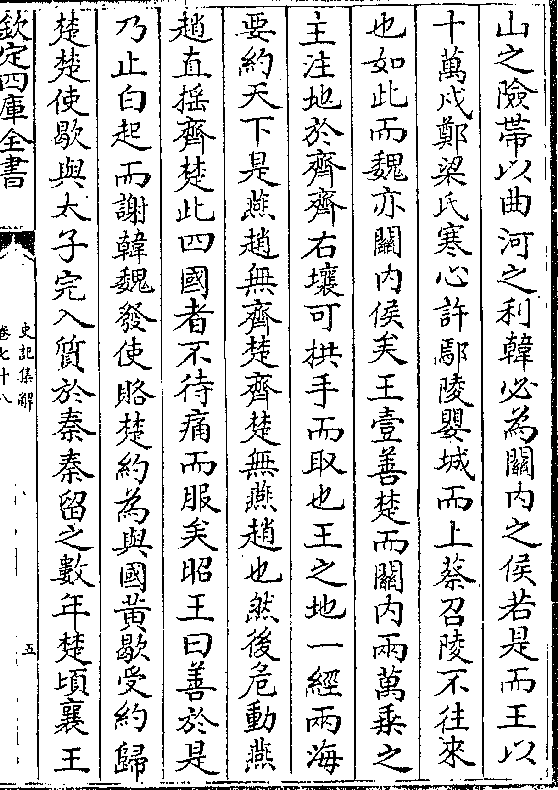 山之險帶以曲河之利韓必為關内之侯若是而王以
十萬戍鄭梁氏寒心許鄢陵嬰城而上蔡召陵不往來
也如此而魏亦關内侯矣王壹善楚而關内兩萬乗之
主注地於齊齊右壤可拱手而取也王之地一經兩海
要約天下是燕趙無齊楚齊楚無燕趙也然後危動燕
趙直揺齊楚此四國者不待痛而服矣昭王曰善於是
乃止白起而謝韓魏發使賂楚約為與國黄歇受約歸
楚楚使歇與太子完入質於秦秦留之數年楚頃襄王
欽定四庫全書
史記集解
卷七十八
五